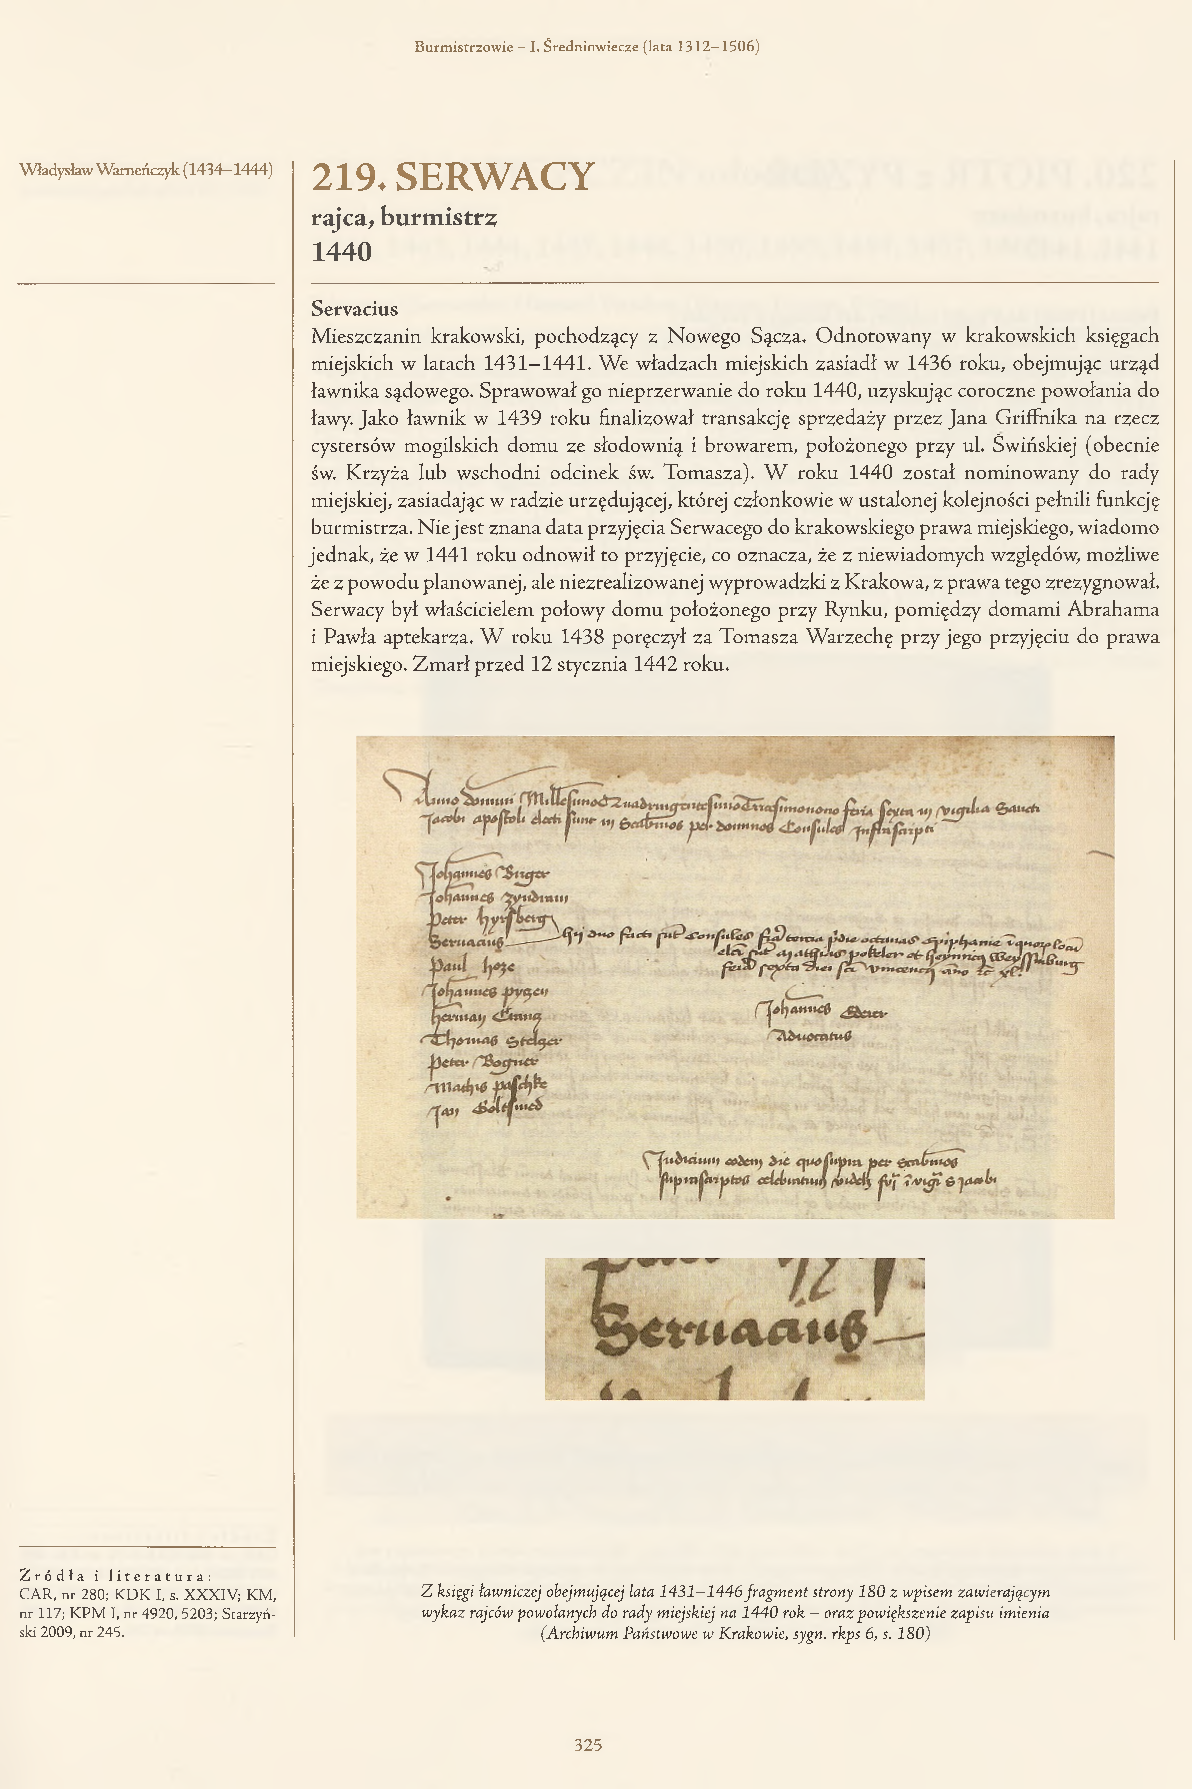 Burmistrzowie – I. Średniowiecze (lata 1312–1506)
Władysław Warneńczyk (1434–1444)
219. SERWACY
rajca, burmistrz
1440
Servacius
Mieszczanin krakowski, pochodzący z Nowego Sącza. Odnotowany w krakowskich księgach
miejskich w latach 1431–1441. We władzach miejskich zasiadł w 1436 roku, obejmując urząd
ławnika sądowego. Sprawował go nieprzerwanie do roku 1440, uzyskując coroczne powołania do
ławy. Jako ławnik w 1439 roku finalizował transakcję sprzedaży przez Jana Griffnika na rzecz
cystersów mogilskich domu ze słodownią i browarem, położonego przy ul. Świńskiej (obecnie
św. Krzyża lub wschodni odcinek św. Tomasza). W roku 1440 został nominowany do rady
miejskiej, zasiadając w radzie urzędującej, której członkowie w ustalonej kolejności pełnili funkcję
burmistrza. Nie jest znana data przyjęcia Serwacego do krakowskiego prawa miejskiego, wiadomo
jednak, że w 1441 roku odnowił to przyjęcie, co oznacza, że z niewiadomych względów, możliwe
że z powodu planowanej, ale niezrealizowanej wyprowadzki z Krakowa, z prawa tego zrezygnował.
Serwacy był właścicielem połowy domu położonego przy Rynku, pomiędzy domami Abrahama
i Pawła aptekarza. W roku 1438 poręczył za Tomasza Warzechę przy jego przyjęciu do prawa
miejskiego. Zmarł przed 12 stycznia 1442 roku.
Anno domini Millesimo Quadringentesimo Tricesimonono feria sexta in vigilia Sancti
Jacobi apostoli electi sunt in Scabinos per dominos Consules Infrascripti
Johannes
Johannes Zyndram
Peter hyrsberg
Seruacius hij duo facti sunt Consules
Paul hoze
Johannes pygen
herman
Thomas Stelger
Peter Bogner
Mathis paschke
Jan Goltsmed
Johannes Ederer
Advocatus
Judicium eodem die quo supra per Scabinos
suprascriptos celebratum
Seruacius
Źródła i literatura:
CAR, nr 280; KDK I, s. XXXIV; KM,
nr 117; KPM I, nr 4920, 5203; Starzyń-
ski 2009, nr 245.
Z księgi ławniczej obejmującej lata 1431–1446 fragment strony 180 z wpisem zawierającym
wykaz rajców powołanych do rady miejskiej na 1440 rok – oraz powiększenie zapisu imienia
(Archiwum Państwowe w Krakowie, sygn. rkps 6, s. 180)
325